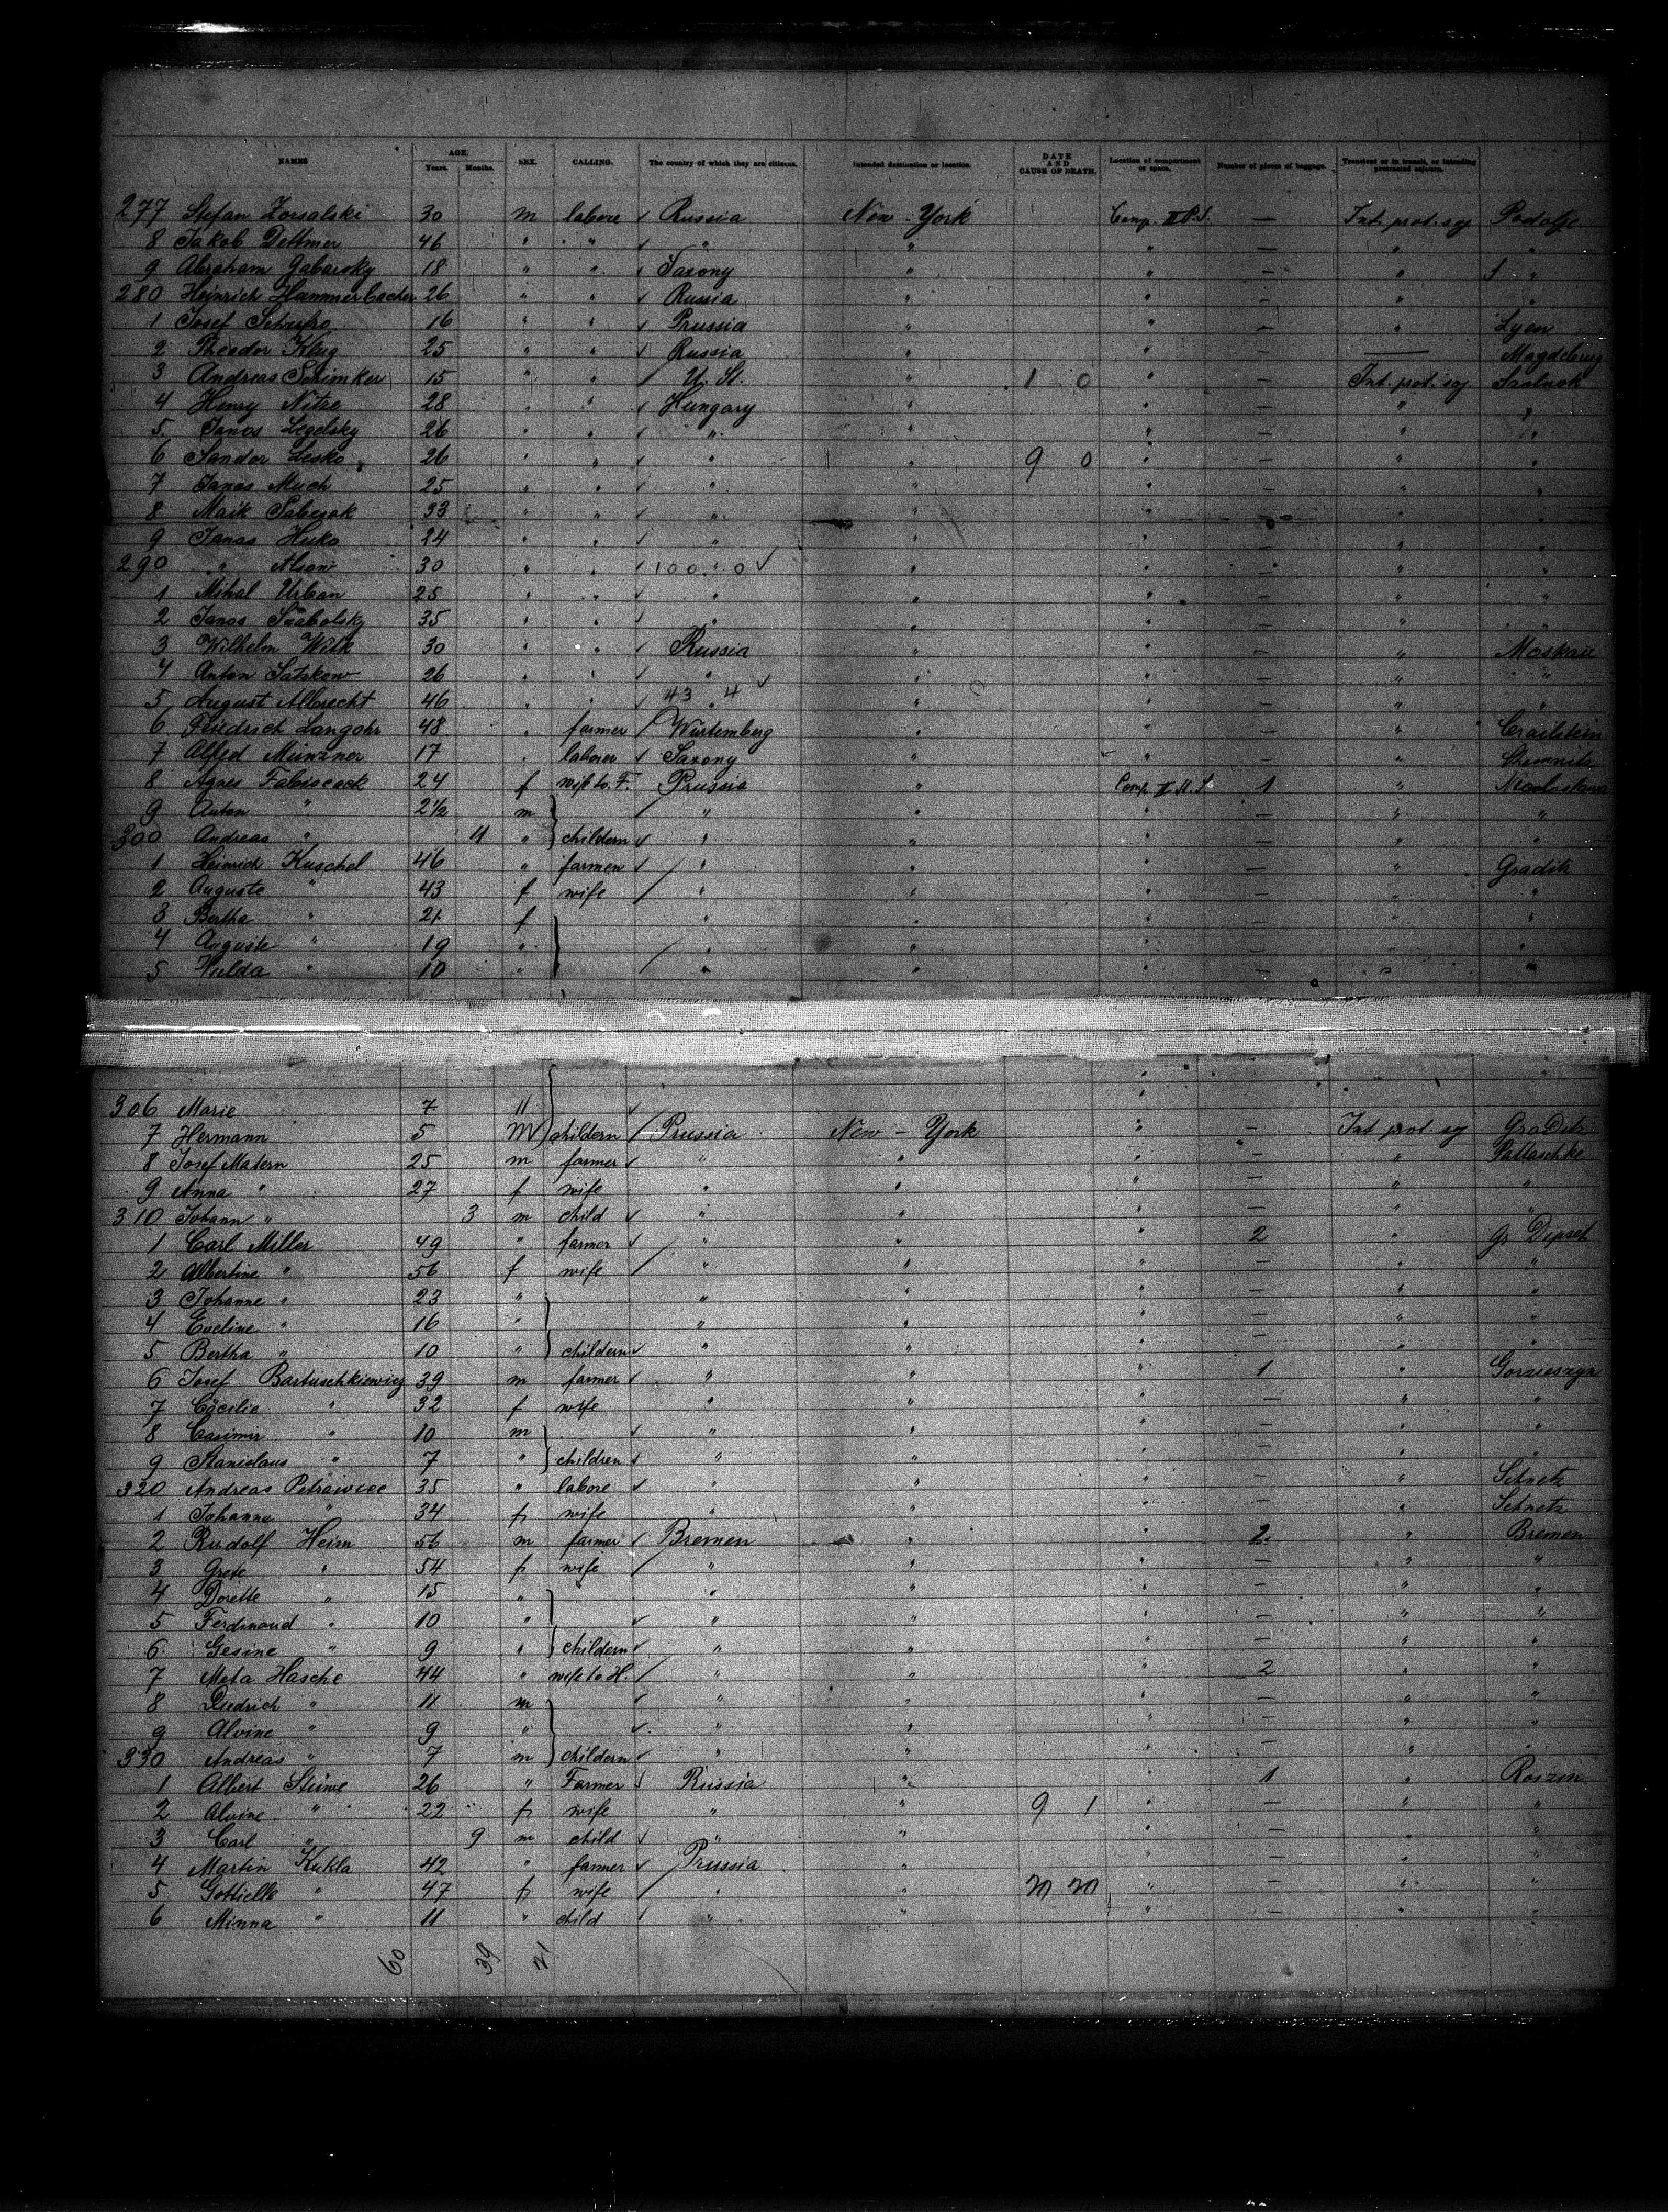 NAMES AGE. Years. Months. SEX. CALLING. The country of which they are citizens. Intended destination or location. DATE AND CAUSE OF DEATH. Location of compartment or space. Number of pieces of baggage. Transient or in transit, or intending protracted sojourn.
277 Stefan Zorsalski 30 m labore ✓ Russia New-York Comp. II — Int. prot. soj Podolje
8 Jakob Dettmer 46 " " ✓ " " " — " "
9 Abraham Gabarsky 18 " " ✓ Saxony " " — " "
280 Heinrich Hammerbacher 26 " " ✓ Russia " " — " "
1 Josef 16 " " ✓ Prussia " " — " Lyen
2 Theodor Klug 25 " " ✓ Russia " " — — Magdeburg
3 Andreas Schimker 15 " " / U. St. " 1 0 " — Int. prot. soj Szolnok
4 Henry Nitze 28 " " ✓ Hungary " " — " "
5 Janos Legelsky 26 " " ✓ " " " — " "
6 Sandor Lesko 26 " " ✓ " " 9 0 " — " "
7 Janos Much 25 " " ✓ " " " — " "
8 Maik 33 " " ✓ " " " — " "
9 Janos Huko 24 " " ✓ " " " — " "
290 " 30 " " ✓ 100 " 0 ✓ " " " " "
1 Mihal Urban 25 " " ✓ " " " — " "
2 Janos Szabolsky 35 " " ✓ " " " — " "
3 Wilhelm Wilk 30 " " ✓ Russia " " — " Moskau
4 Anton Satskow 26 " " ✓ " ✓ " " — " "
5 August Albrecht 46 " " ✓ 43 " 4 " " — " "
6 Friedrich Langohr 48 " farmer / Würtemberg " " — " Crailstein
7 Alfred Münzner 17 " laborer ✓ Saxony " " — " Chemnitz
8 Agnes 24 f wife to F. Prussia " Comp. II 1 "
9 Anton " 2½ m " " " — " "
300 Andreas " 11 " } childern ✓ " " " — " "
1 Heinrich Kuschel 46 " farmen ✓ / " " " — " Graditz
2 Auguste " 43 f wife / " " " — " "
3 Bertha " 21 f " " " — " "
4 Auguste " 19 " / " " " — " "
5 Hulda " 10 " / " " " — " "
306 Marie 7 11 ✓
7 Hermann 5 M childern / Prussia New-York " — Int prot. soj Graditz
8 Josef Matern 25 m farmer ✓ " " " — " Pattaschke
9 Anna " 27 f wife " " " — " "
310 Johann " 3 m child ✓ " " " — " "
1 Carl Miller 49 " farmer ✓ " " " 2 " gr Dipset
2 Albertine " 56 f wife / " " " — " "
3 Johanne " 23 " " " " — " "
4 Eveline " 16 " " " " — " "
5 Bertha " 10 " } childern ✓ " " " — " "
6 Josef Bartuschkiewicz 39 m farmer ✓ " " " 1 " Gorzieszyn
7 Cäcilie " 32 f wife " " " — " "
8 Casimir " 10 m ✓ " " " — " "
9 Stanislaus " 7 " } children ✓ " " " — " "
320 Andreas 35 " labore ✓ " " " — " Schnetz
1 Johanne " 34 f wife " " " — " Schnetz
2 Rudolf Heim 56 m farmer ✓ Bremen " " 2 " Bremen
3 Grete " 54 f wife / " " " — " "
4 Dorette " 15 " " " " — " "
5 Ferdinand " 10 " ✓ " " " — " "
6 Gesine " 9 " } childern ✓ " " " — " "
7 Meta Hasche 44 " wife to H. / " " " 2 " "
8 Diedrich " 11 m ✓ " " " — " "
9 Alvine " 9 " ✓ " " " — " "
330 Andreas " 7 m } childern ✓ " " " — " "
1 Albert Stüwe 26 " Farmer ✓ Russia " " 1 " Roszin
2 Alvine " 22 f wife " " 9 1 " — " "
3 Carl " 9 m child ✓ " " " — " "
4 Martin Kukla 42 " farmer ✓ Prussia " " — " "
5 Gottielb " 47 f wife / " " 20 20 " — " "
6 Minna " 11 " child / " " " — " "
60 39 21